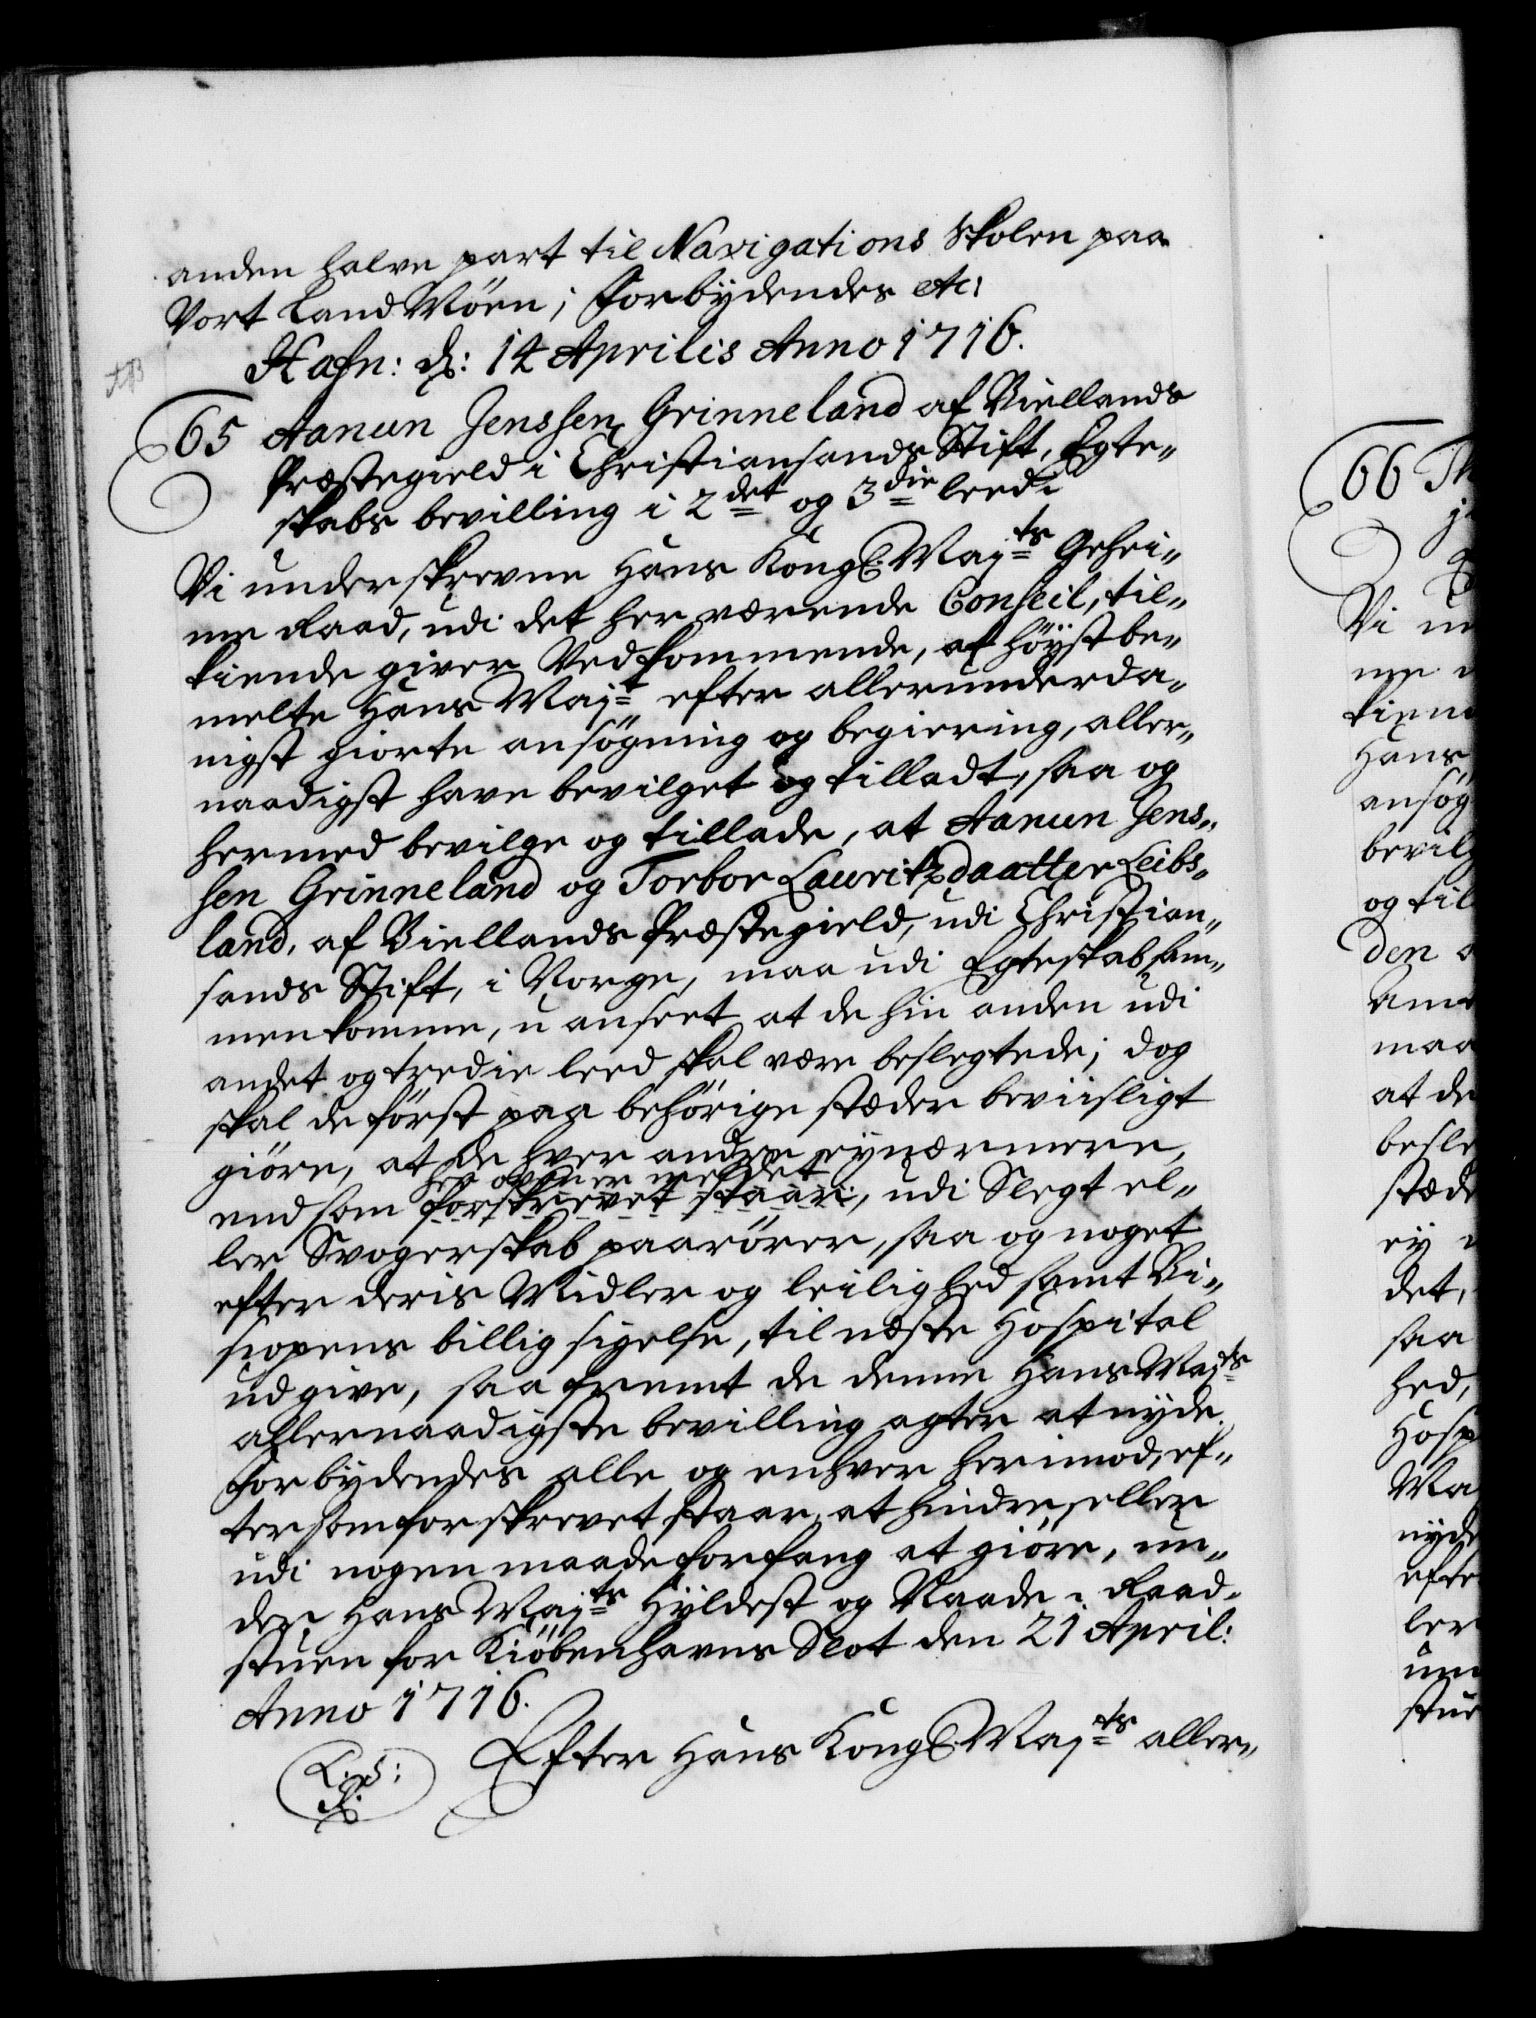 anden halve part til Navigations Skolen paa
Vort Land Möen; Forbÿdendes etc:
Hafn: d: 14 Aprilis Anno 1716.
65 Aanun Jenssen Grinneland af Biellands
Præstegield i Christiansands Stift, Egte„
skabs bevilling i 2det og 3die leed:
Vi underskrevne Hans Kongl. Majts Gehei„
me Raad, udi det her værende Conseil, til„
kiende giver Vedkommende, at höÿstbe„
melte Hans Majt efter allerunderda„
nigst giorte ansögning og begiering, aller„
naadigst have bevilget og tilladt, saa og
hermed bevilge og tillade, at Aanun Jens„
sen Grinneland og Torbor Lauritzdaatter Leibs„
land, af Biellands Præstegield, udi Christian„
sands Stift, i Norge, maa udi Egteskab sam„
men komme, uanseet at de hin anden udi
andet og tredie leed skal være beslegtede; dog
skal de först paa behörige stæder beviisligt
giöre, at de hver andre eÿ nærmere,
her oven er meldet
end som forskrevet staar, udi Slegt el„
ler Svogerskab paarörer, saa og noget
efter deris Midler og leilighed samt Bi„
skopens billig sigelse, til næste Hospital
udgive, saa fremt de denne Hans Majts
allernaadigste bevilling agter at nÿde.
Forbÿdendes alle og enhver herimod, ef„
tersom forskrevet staar, at hindre, eller
udi nogen maade forfang at giöre, un„
der Hans Majts Hÿldest og Naade. Raad„
stuen for Kiöbenhavns Slot den 21 April:
Anno 1716.
L.S: Efter Hans Kongl. Majts aller„
66 Th
Vi un
me
kiend
Hans
ansög
bevil
og til
den
Am
maa
at de
besle
stæde
eÿ
det,
saa
hed,
Hosp
Ma
nÿde
efte
ler
un
stue